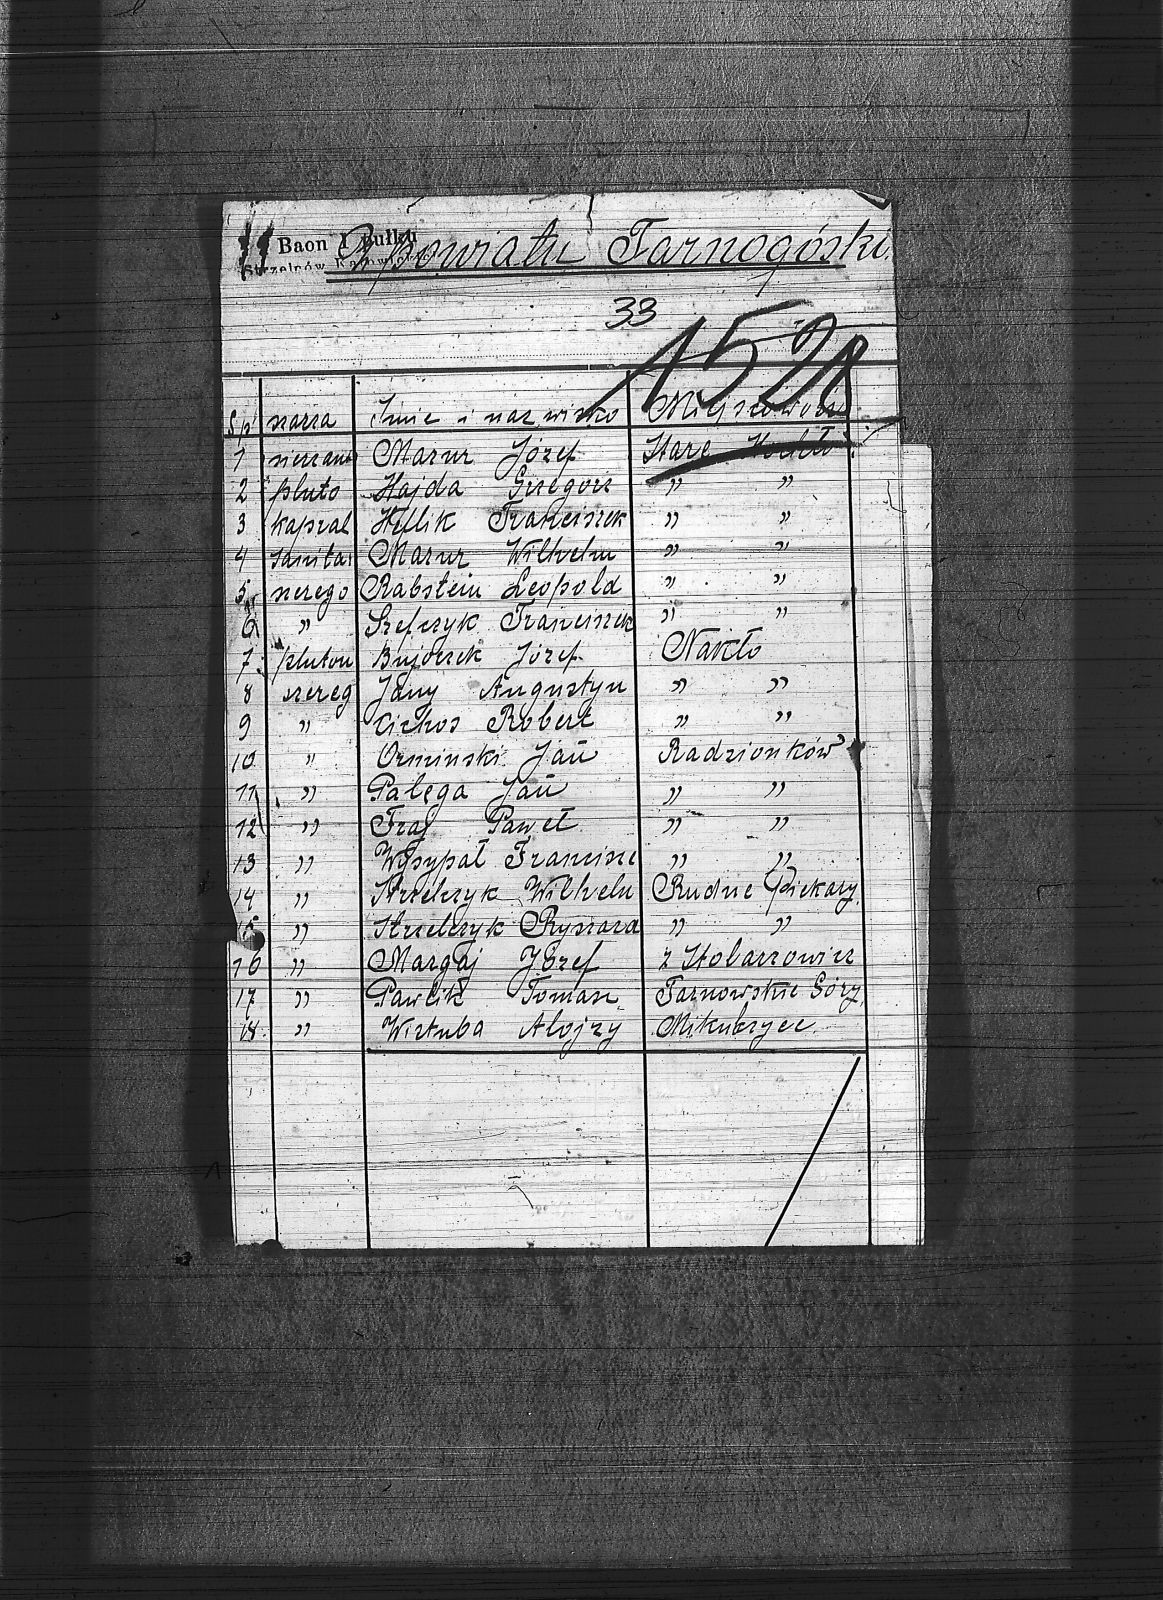 Baon I Pułku
Strzelców
z powiatu Tarnogórski.
33
1528
Imie i nazwisko Miejscowość
1 Mazur Józef Stare
2 pluto Hajda Grzegorz " "
3 kapral Hyllik Franciszek " "
4 sanitar Mazur Wilhelm " "
5 szerego Rabstein Leopold " "
6 " Szefczyk Franciszek " "
7 pluton Bujoczek Józef Nakło
8 szereg Jany Augustyn " "
9 " Cichos Robert " "
10 " Orminski Jan Radzionków
11 " Palęga Jan " "
12 " Fraj Paweł " "
13 " Wysypał Francisze " "
14 " Strzelczyk Wilhelm Rudne Piekary
15 " Strzelczyk Ryszard " "
16 " Margaj Józef z Stolarzowic
17 " Pawlik Tomasz Tarnowskie Góry
18 " Wiztuba Alojzy Mikulczyce